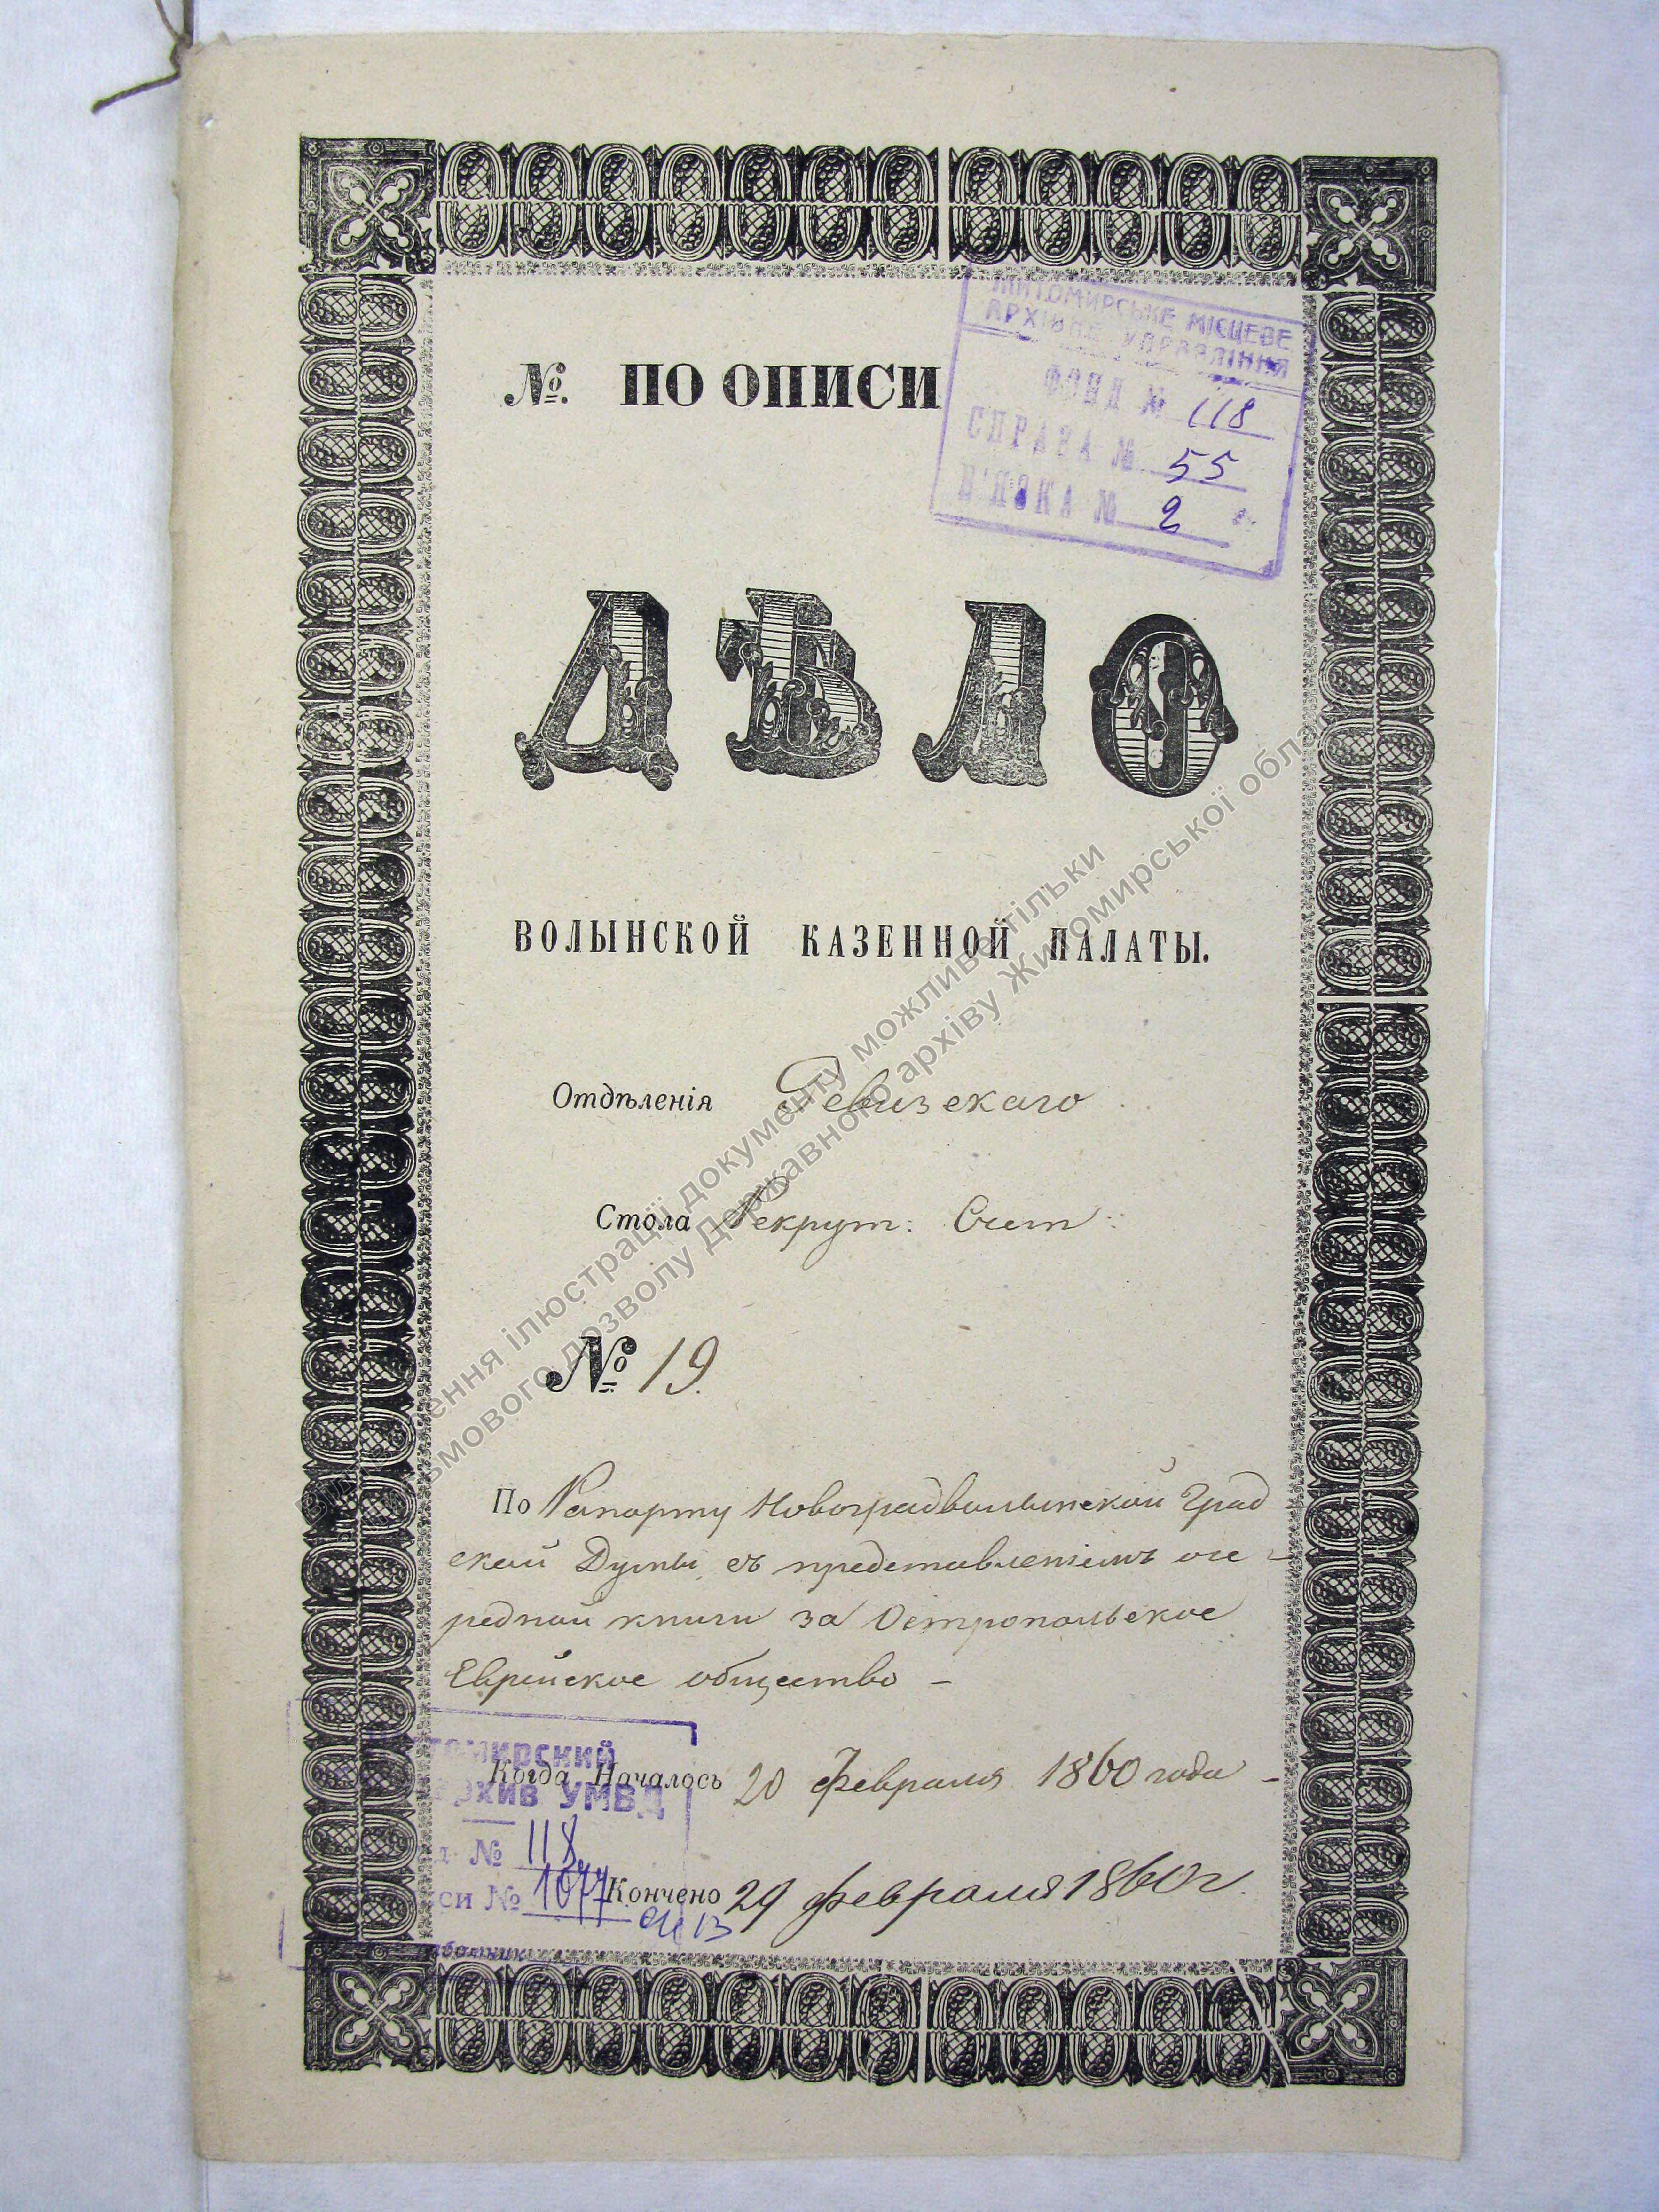 ЖИТОМИРСЬКЕ МІСЦЕВЕ
АРХІВНЕ УПРАВЛІННЯ
ФОНД № 118
СПРАВА № 55
В'ЯЗКА № 2
№. ПО ОПИСИ
ДѢЛО
ВОЛЫНСКОЙ КАЗЕННОЙ ПАЛАТЫ.
Отдѣленія Ревизскаго
Стола Рекрут: Счет:
№ 19.
По Рапорту Новоградволынской Град
ской Думы съ представленіемъ оче-
редной книги за Остропольское
Еврейское общество —
Когда Началось 20 февраля 1860 года —
Кончено 29 февраля 1860 г.
томирский
рхив УМВД
д № 118
си № 1077
ення ілюстрації документу можливе тільки
ьмового дозволу Державного архіву Житомирської обла